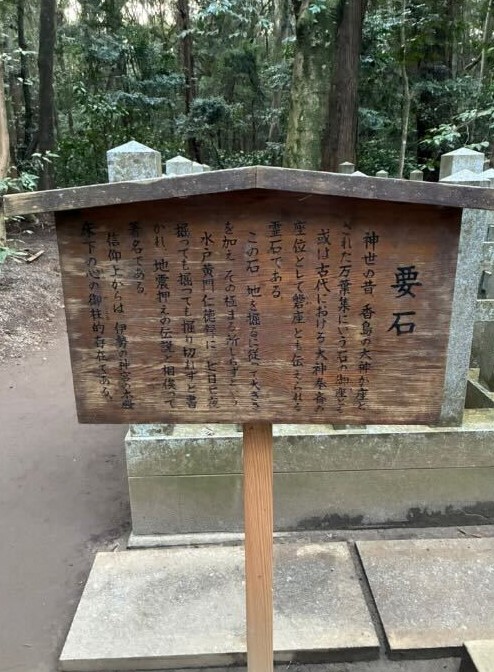 要石
神世の昔 香島の大神が座と
された万葉集にいう石の御座とも
或は古代における大神奉斎の
座位として磐座とも伝えられる
霊石である
この石 地を掘るに従って大きさ
を加え その極まる所しらずという
水戸黄門仁徳録に 七日七夜
掘っても掘っても掘り切れずと書
かれ 地震押えの伝説と相俟って
著名である
信仰上からは 伊勢の神宮の
床下の心の御柱的存在である